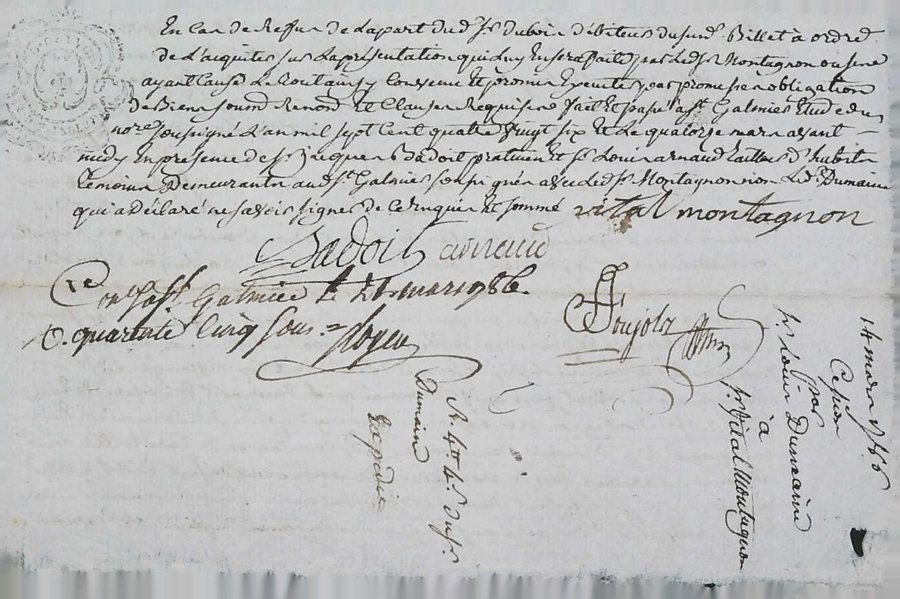 En cas de Reffus de la part du d. Sr. dubois débiteur du susd. Billet à ordre
de L'acquiter sur La présentation qui luy En sera faite par Led. Sr. Montagnon ou ses
ayant Cause Le tout ainsy Convenu Et promis Executer par promesse obligation
de Biens soumd. Renond. Et Clauses Requises fait Et passé à St. Galmier Etude du
nore. soussigné L'an mil sept Cent quatre vingt six Et Le quatorze mars avant
midy En présence de Sr. Jacques Badoit praticien Et Sr. Louis arnaud tailleur d'habits
temoins Demeurants aud. St. Galmier soussignés avec Led. Sr. Montagnon non Led. Sr. Dumaine
qui a Déclaré ne savoir signer de ce Enquis Et sommé vital montagnon
Badoit arnaud
Conlé. à St. Galmier le 21 mars 1786.
R. quarante Cinq sous
Poujols
14 mars 1786
Cession
par
Sr. Louis Dumaine
à
Sr. Vital Montagnon
Dumaine